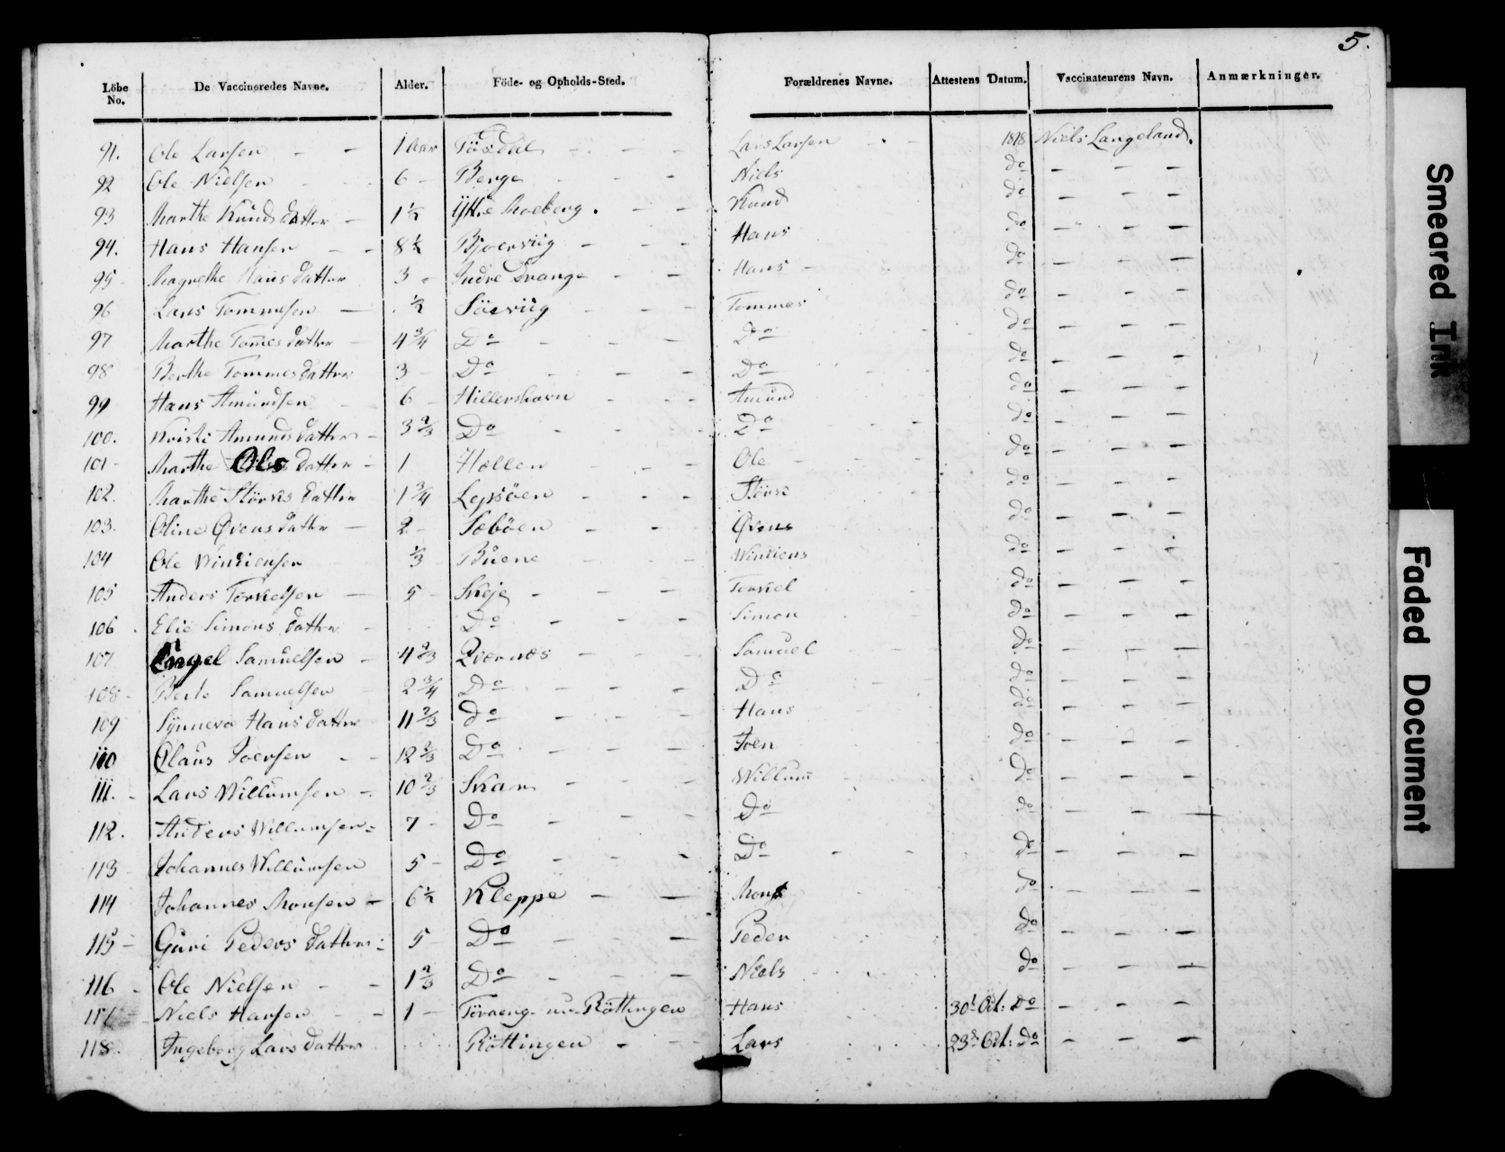 5.
Löbe No. De Vaccineredes Navne. Alder. Föde- og Opholds-Sted. Forældrenes Navne. Attestens Datum. Vaccinateurens Navn. Anmærkninger.
91. Ole Larsen - - 1 Lars Larsen 1818 Niels Langeland.
92 Ole Nielsen 6 - Berge Niels do - - -
93 Marthe Knudsdatter - 1½ Knud do - - -
94. Hans Hansen - - 8½ Hans do - - -
95 Hansdatter 3 - Indre Hans - do - - -
96 Lars Tommesen - ½ Tommes do - - -
97 Marthe Tomesdatter 4¾ Do Do do - - -
98 Berthe Tommesdatter 3 - Do Do do - - -
99 Hans Amundsen 6 - Hillershavn Amund do - - -
100. Amundsdatter - 3⅔ Do Do do - - -
101 - Marthe Olsdatter - 1 Hellen Ole do - - -
102. Marthe datter 1¾ Lepsöen do - - -
103. Oline datter - 2 - Sæböen do - - -
104 Ole ⅓ do - - -
105 Anders Torkelsen - 5 - Skeje Torkiel do - - -
106 Elie Simonsdatter - Do Simon do - - -
107 Engel Samuelsen - 4⅔ Qværnæs Samuel do - - -
108 - Samuelsen 2¾ Do Do do - - -
109 Synneva Hansdatter 11⅔ do Hans do - - -
110 Olaus Joensen - - 12⅔ Do Joen do - - -
111. - Lars Willumsen - 10⅔ Skar Willum do - - -
112. Anders Willumsen - 7 - Do Do do - - -
113 Johannes Willumsen 5 - Do Do do - - -
114 Johannes Monsen - 6½ Kleppe Mons do - - -
115 - Guri Pedersdatter - 5 - Do Peder do - - -
116 - Ole Nielsen - - 1⅔ Do Niels do - - -
117 Niels Hansen - - 1 - Röttingen Hans 30t Oct: Do - - -
118. Ingeborg Larsdatter Röttingen - - Lars 23d Oct: do - - -
Smeared Ink
Faded Document